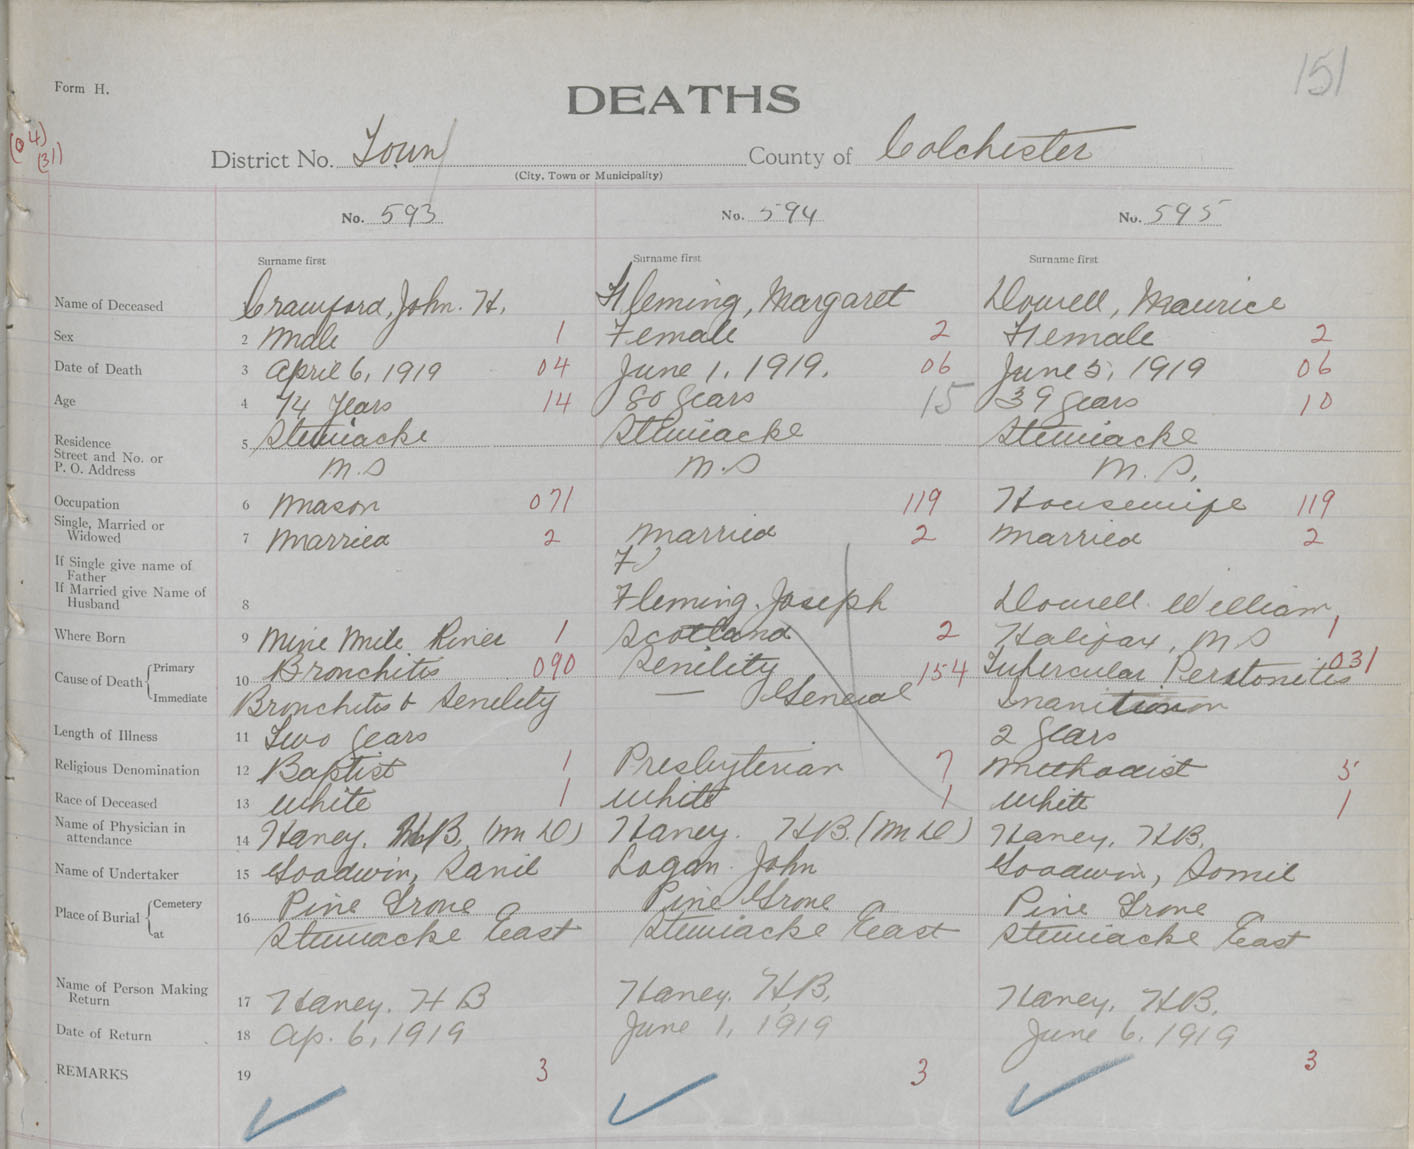 151
Form H.
DEATHS
(04)
(31)
District No. Town County of Colchester
(City, Town or Municipality)
No. 593 No. 594 No. 595
Surname first Surname first Surname first
Name of Deceased 1 Crawford, John. H. Fleming, Margaret Dowell, Maurice
Sex 2 Male 1 Female 2 Female 2
Date of Death 3 April 6, 1919 04 June 1, 1919. 06 June 5, 1919 06
Age 4 74 Years 14 80 Years 15 39 Years 10
Residence 5 Stewiacke Stewiacke Stewiacke
Street and No. or
P. O. Address N.S N.S N.S,
Occupation 6 Mason 071 119 Housewife 119
Single, Married or
Widowed 7 Married 2 Married 2 Married 2
If Single give name of
Father F
If Married give Name of
Husband 8 Fleming. Joseph Dowell. William,
Where Born 9 Nine Mile River 1 Scotland 2 Halifax, N S 1
Cause of Death Primary 10 Bronchitis 090 Senility 154 Tubercular Peratonites 031
Immediate Bronchitis & Senility — General Inanition
Length of Illness 11 Two Years 2 Years
Religious Denomination 12 Baptist 1 Presbyterian 7 Methodist 5
Race of Deceased 13 White 1 White 1 White 1
Name of Physician in
attendance 14 Haney. H.B. (M D) Haney. H B. (M D) Haney, H B.
Name of Undertaker 15 Goodwin, Logan. John Goodwin,
Place of Burial Cemetery 16 Pine Grove Pine Grove Pine Grove
at Stewiacke East Stewiacke East Stewiacke East
Name of Person Making
Return 17 Haney. H B Haney, H.B. Haney, H B.
Date of Return 18 Ap. 6, 1919 June 1, 1919 June 6, 1919
REMARKS 19 3 3 3